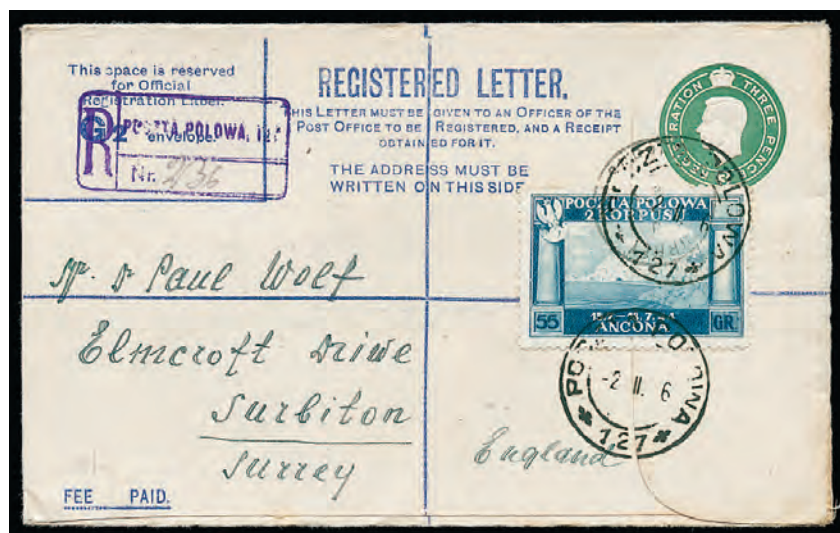 This space is reserved
for Official
Registration Label.
G2 envelope.
R POCZTA POLOWA, 127
Nr. 2/36
REGISTERED LETTER.
THIS LETTER MUST BE GIVEN TO AN OFFICER OF THE
POST OFFICE TO BE REGISTERED, AND A RECEIPT
OBTAINED FOR IT.
THE ADDRESS MUST BE
WRITTEN ON THIS SIDE
REGISTRATION THREE PENCE
POCZTA POLOWA
* 127 *
POCZTA POLOWA
2 KORPUSU
55 ANCONA GR.
POCZTA POLOWA
-2 II. 6
* 127 *
Dr Paul Wolf
Elmcroft Driwe
Surbiton
Surrey
England
FEE PAID.